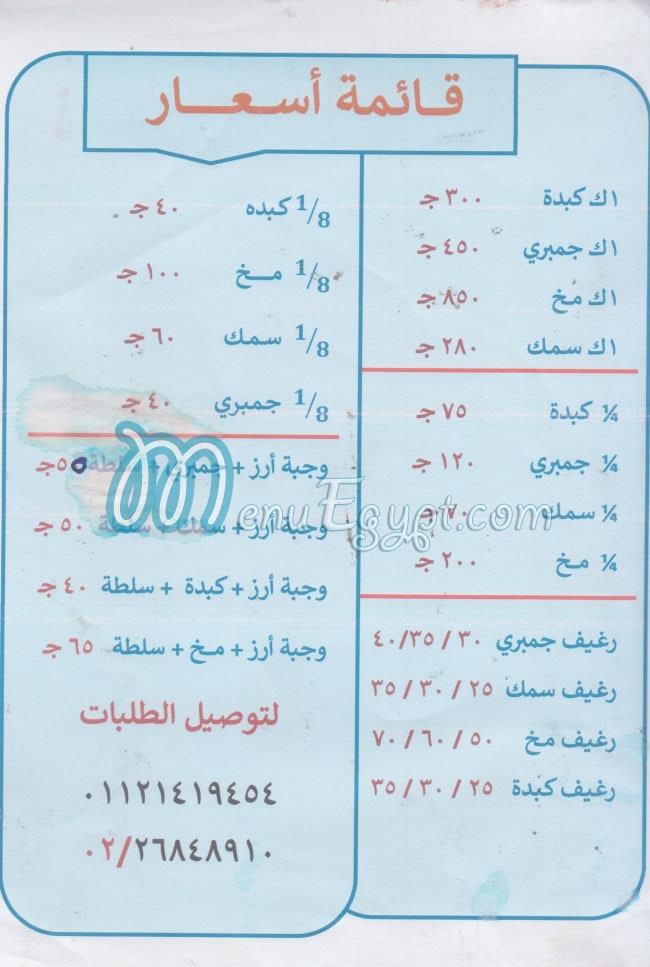 قائمة أسعار
١ك كبدة ٣٠٠ جـ
١ك جمبري ٤٥٠ جـ
١ك مخ ٨٥٠ جـ
١ك سمك ٢٨٠ جـ
¼ كبدة ٧٥ جـ
¼ جمبري ١٢٠ جـ
¼ سمك ٧٠ جـ
¼ مخ ٢٠٠ جـ
رغيف جمبري ٣٠ / ٣٥/ ٤٠
رغيف سمك ٢٥ / ٣٠ / ٣٥
رغيف مخ ٥٠ / ٦٠ / ٧٠
رغيف كبدة ٢٥ / ٣٠ / ٣٥
1/8 كبده ٤٠ جـ
1/8 مـخ ١٠٠ جـ
1/8 سمك ٦٠ جـ
1/8 جمبري ٤٠ جـ
وجبة أرز + جمبري + سلطة ٥٥ جـ
وجبة أرز + سمك + سلطة ٥٠ جـ
وجبة أرز + كبدة + سلطة ٤٠ جـ
وجبة أرز + مـخ + سلطة ٦٥ جـ
لتوصيل الطلبات
٠١١٢١٤١٩٤٥٤
٠٢/٢٦٨٤٨٩١٠
MenuEgypt.com